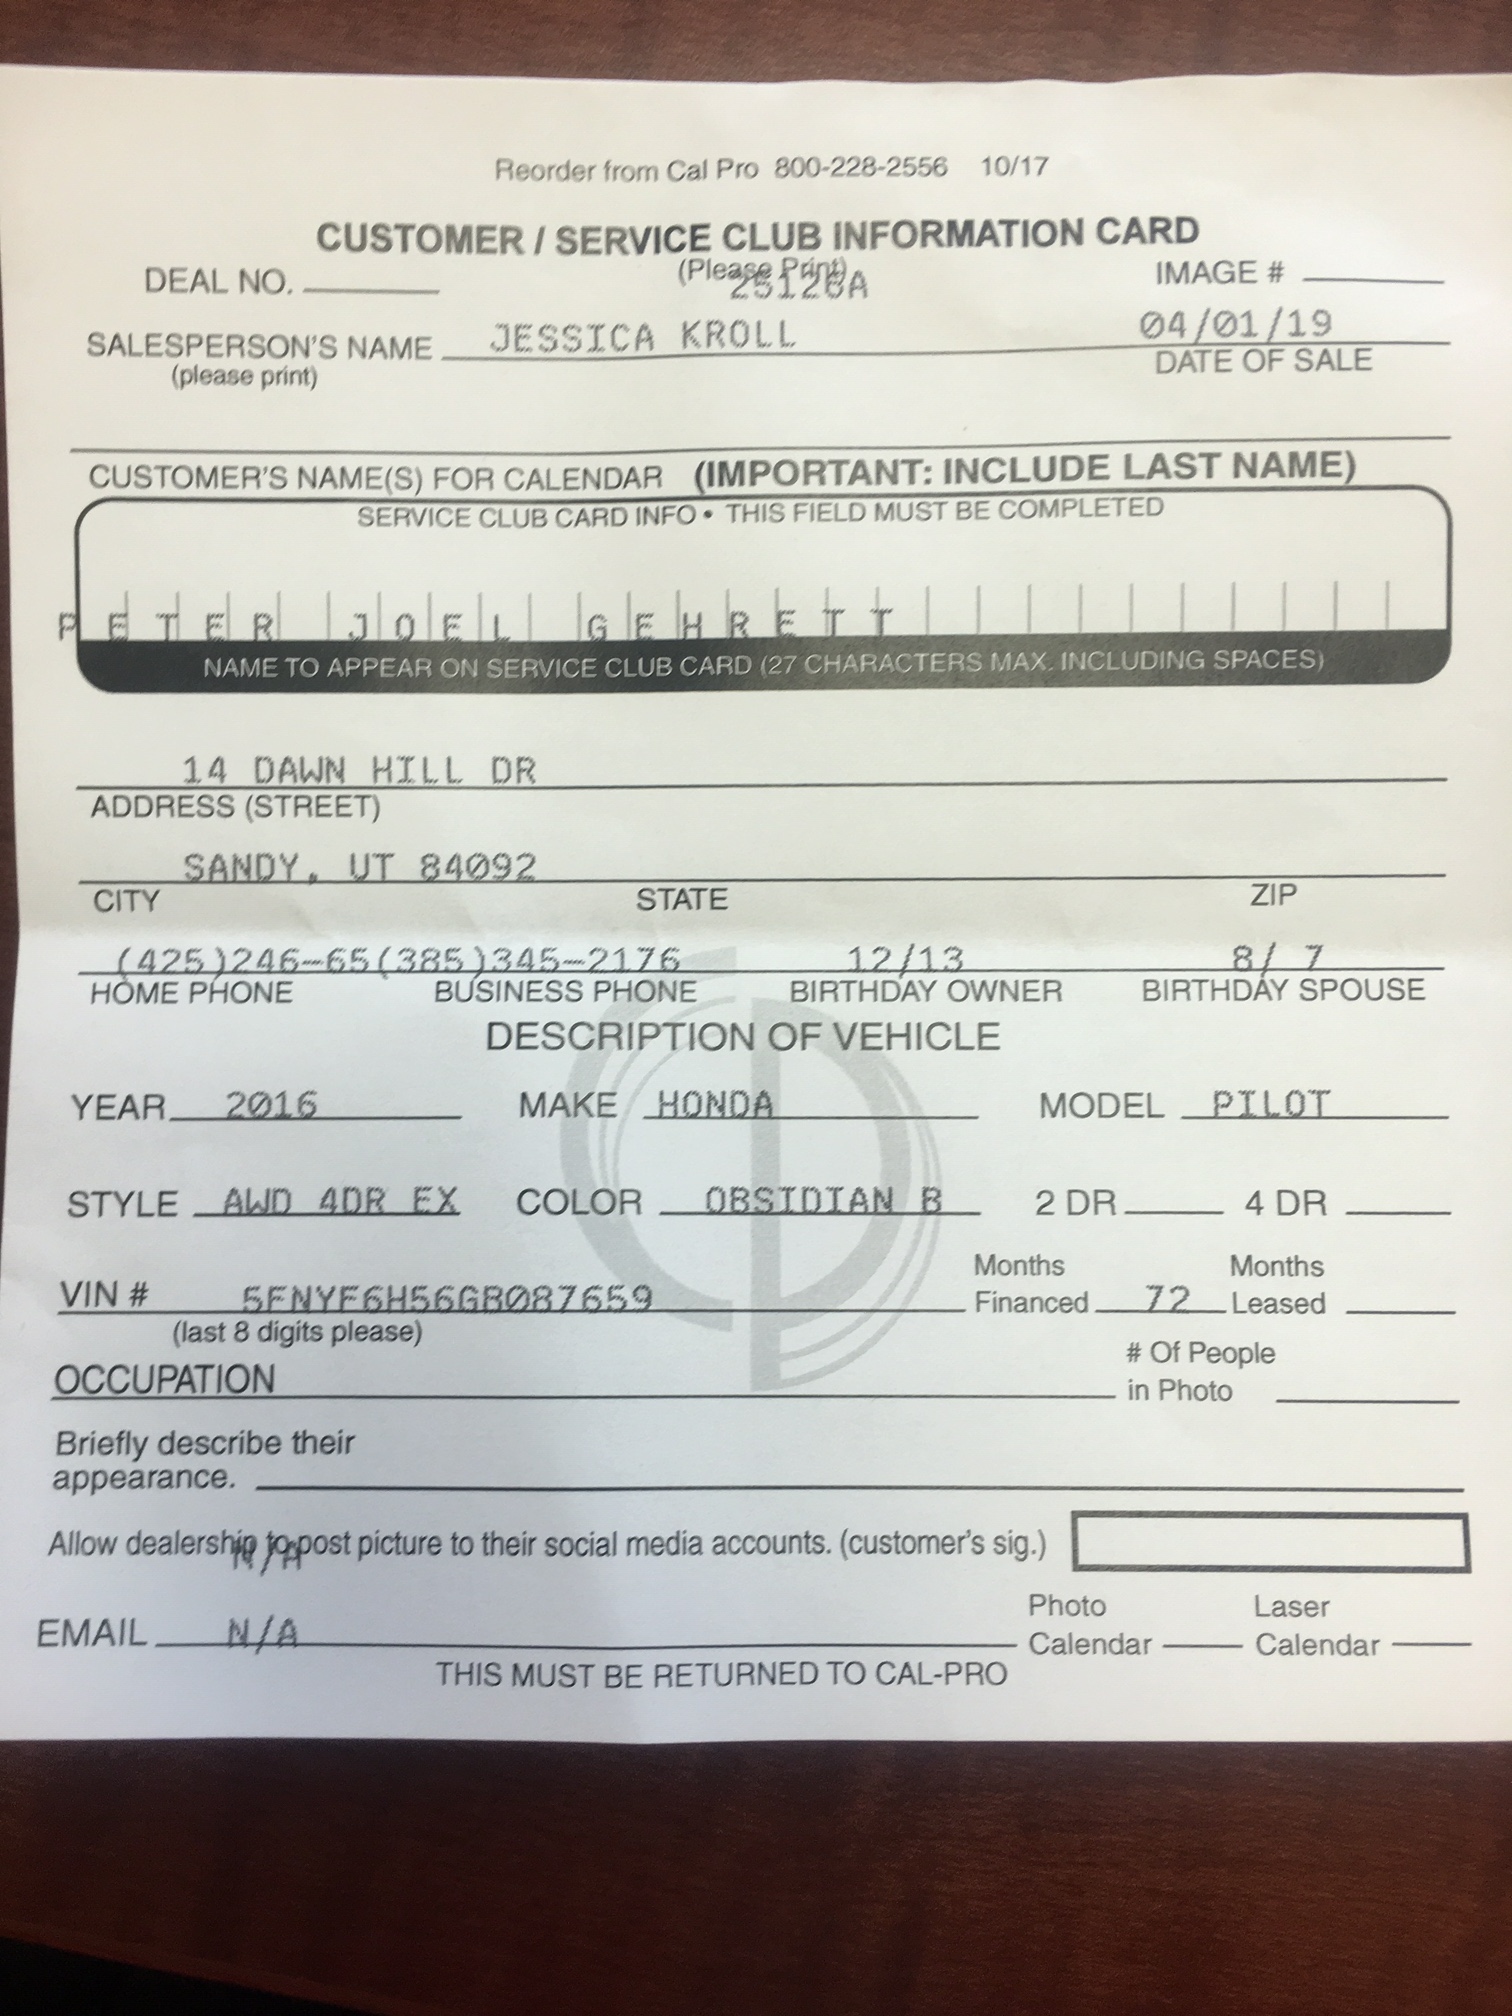 Reorder from Cal Pro 800-228-2556 10/17
CUSTOMER / SERVICE CLUB INFORMATION CARD
DEAL NO. (Please Print) IMAGE #
SALESPERSON'S NAME JESSICA KROLL 04/01/19
(please print) DATE OF SALE
CUSTOMER'S NAME(S) FOR CALENDAR (IMPORTANT: INCLUDE LAST NAME)
SERVICE CLUB CARD INFO • THIS FIELD MUST BE COMPLETED
PETER JOEL GEHRETT
NAME TO APPEAR ON SERVICE CLUB CARD (27 CHARACTERS MAX. INCLUDING SPACES)
14 DAWN HILL DR
ADDRESS (STREET)
SANDY, UT 84092
CITY STATE ZIP
(425)246-65(385)345-2176 12/13 8/ 7
HOME PHONE BUSINESS PHONE BIRTHDAY OWNER BIRTHDAY SPOUSE
DESCRIPTION OF VEHICLE
YEAR 2016 MAKE HONDA MODEL PILOT
STYLE AWD 4DR EX COLOR OBSIDIAN B 2 DR 4 DR
Months Months
VIN # 5FNYF6H56GB087659 Financed 72 Leased
(last 8 digits please)
# Of People
OCCUPATION in Photo
Briefly describe their
appearance.
Allow dealership to post picture to their social media accounts. (customer's sig.)
N/A
Photo Laser
EMAIL N/A Calendar Calendar
THIS MUST BE RETURNED TO CAL-PRO